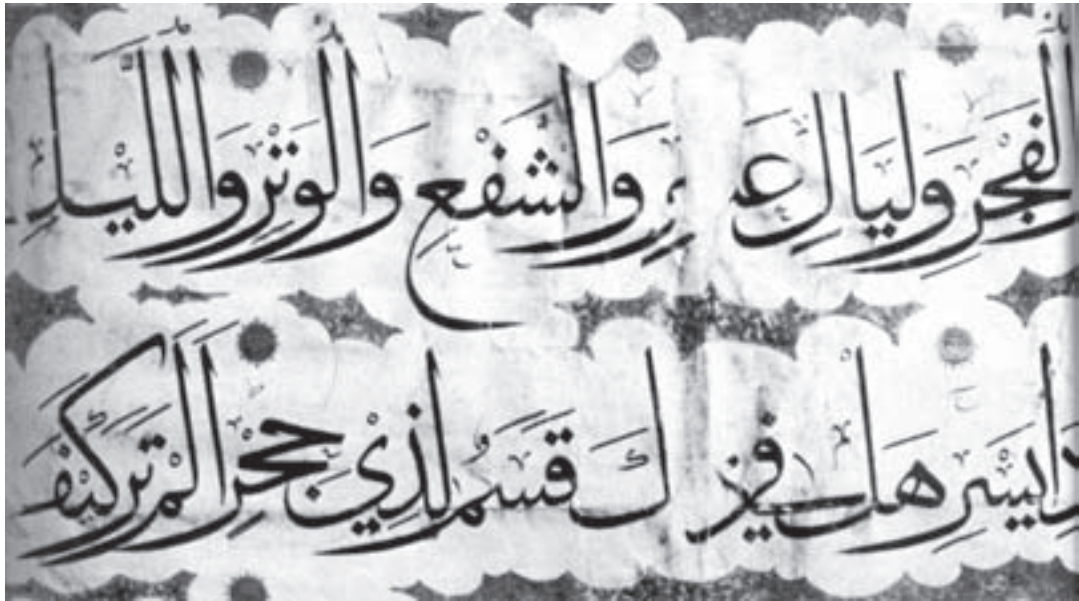 الْفَجْرِ وَلَيَالٍ عَشْرٍ وَالشَّفْعِ وَالْوَتْرِ وَالَّليْلِ
اِذَا يَسْرِ هَلْ فِي ذلِكَ قَسَمٌ لِذِيْ حِجْرٍ اَلَمْ تَرَ كَيْفَ